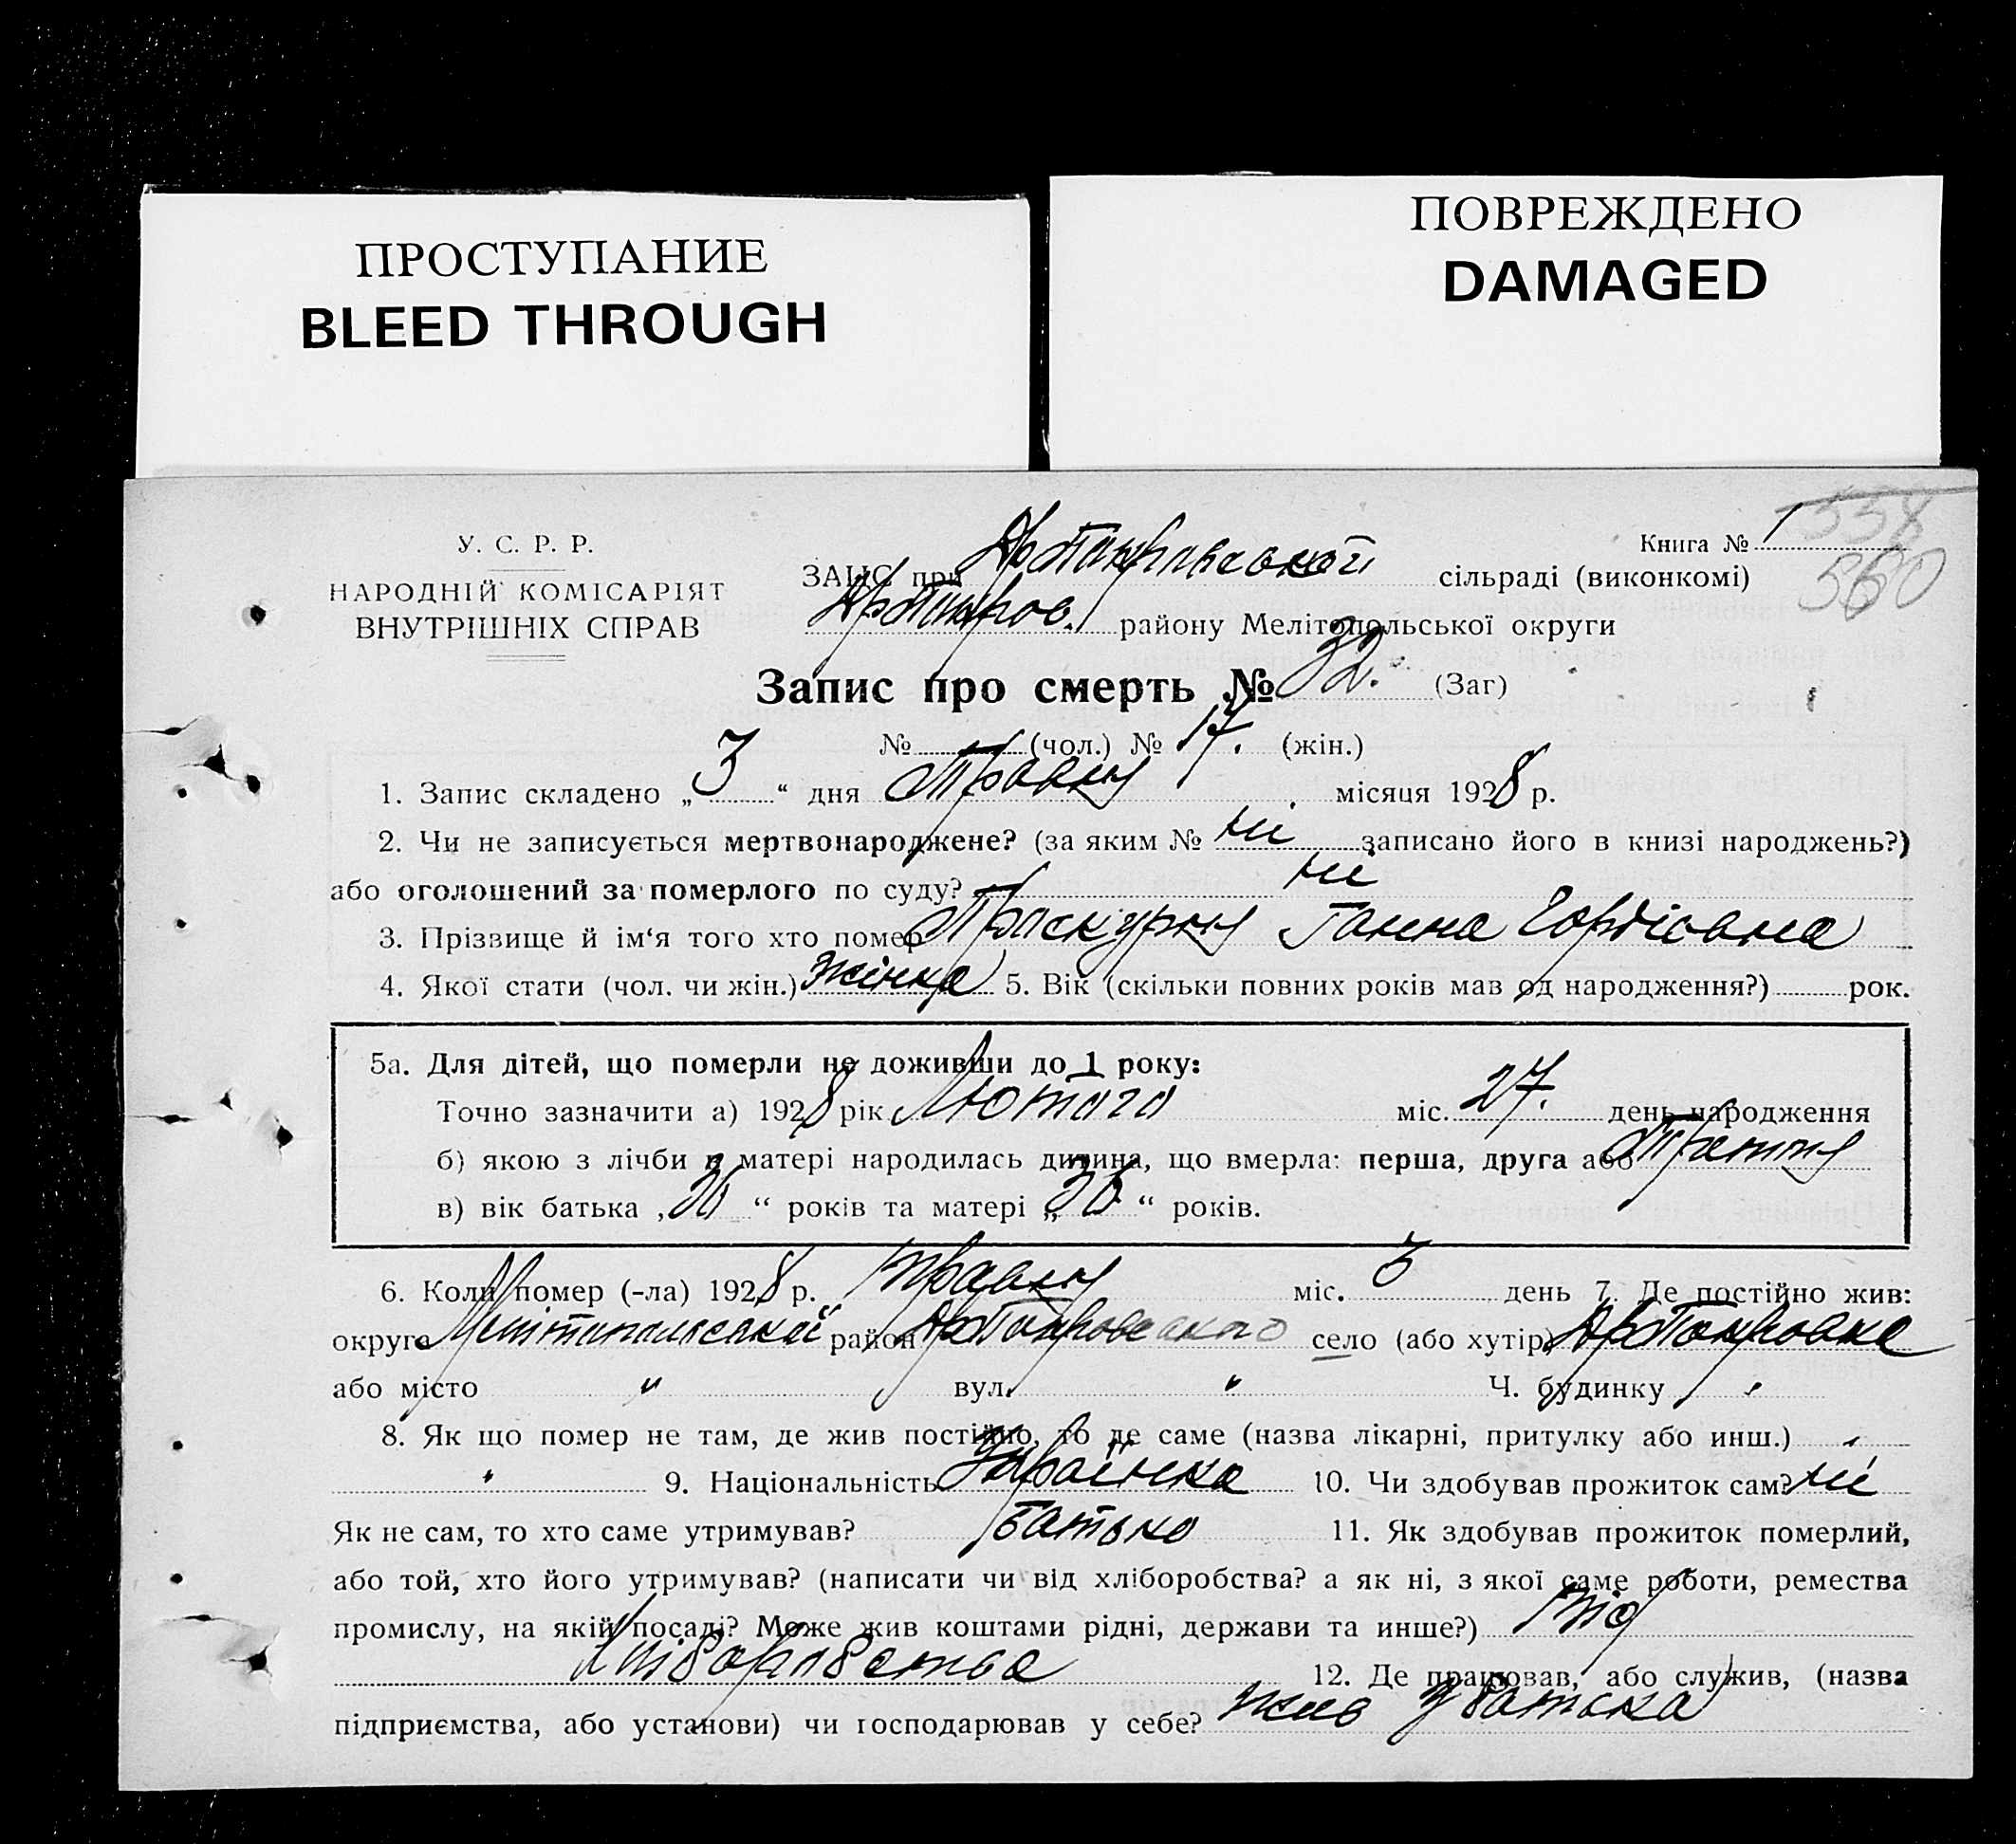 ПРОСТУПАНИЕ
BLEED THROUGH
ПОВРЕЖДЕНО
DAMAGED
У. С. Р. Р.
НАРОДНІЙ КОМІСАРІЯТ
ВНУТРІШНІХ СПРАВ
Книга № 1
558
560
ЗАЦС при сільраді (виконкомі)
району Мелітопольської округи
Запис про смерть № 32. (Заг)
№ (чол.) № 17. (жін.)
1. Запис складено „3“ дня Травня місяця 1928 р.
2. Чи не записується мертвонароджене? (за яким № ні записано його в книзі народжень?)
або оголошений за померлого по суду? ні
3. Прізвище й ім‘я того хто помер Проскурня Ганна Гордіовна
4. Якої стати (чол. чи жін.) жінка 5. Вік (скільки повних років мав од народження?) рок.
5а. Для дітей, що померли не доживши до 1 року:
Точно зазначити а) 1928 рік Лютого міс. 27. день народження
б) якою з лічби в матері народилась дитина, що вмерла: перша, друга або
в) вік батька „36“ років та матері „36“ років.
6. Коли помер (-ла) 1928 р. Травня міс. 3 день 7. Де постійно жив:
округа Мелітопольської район село (або хутір)
або місто " вул. " Ч. будинку "
8. Як що помер не там, де жив постійно, то де саме (назва лікарні, притулку або инш.) "
" 9. Національність Українка 10. Чи здобував прожиток сам? ні
Як не сам, то хто саме утримував? батько 11. Як здобував прожиток померлий,
або той, хто його утримував? (написати чи від хліборобства? а як ні, з якої саме роботи, ремества
промислу, на якій посаді? Може жив коштами рідні, держави та инше?) від
хліборобства 12. Де працював, або служив, (назва
підприємства, або установи) чи господарював у себе? жив у батька